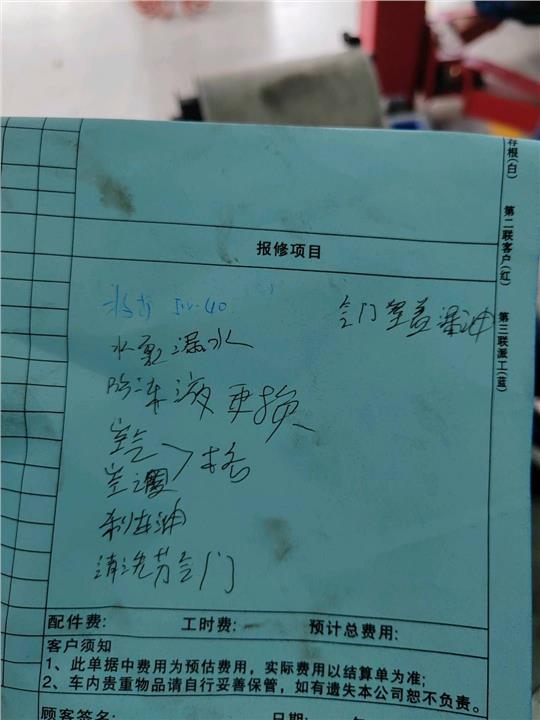 存根(白)
第二联客户(红)
第三联派工(蓝)
报修项目
5W-40
气门室盖漏油
水泵漏水
防冻液更换
空气
空调 > 格
刹车油
清洗节气门
配件费: 工时费: 预计总费用:
客户须知
1、此单据中费用为预估费用，实际费用以结算单为准;
2、车内贵重物品请自行妥善保管，如有遗失本公司恕不负责。
顾客签名: 日期: 年